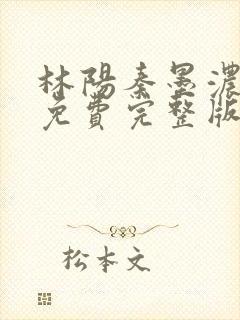 林陽秦墨濃
免費完整版
松本文